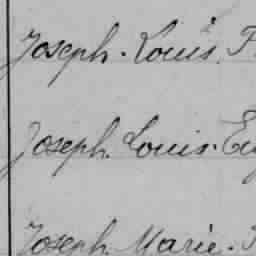 Joseph. Louis.
Joseph. Louis.
Joseph. Marie.